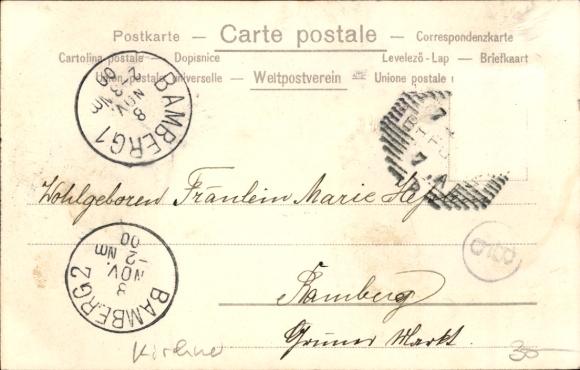 Postkarte — Carte postale — Correspondenzkarte
Cartolina postale — Dopisnice Levelező-Lap — Briefkaart
Union postale universelle — Weltpostverein — Unione postale
BAMBERG 1
8
NOV.
2-3 Nm
00
7
7
Wohlgeboren Fräulein Marie
BAMBERG 2
8
NOV.
-2 Nm
00
Bamberg
Grüner Markt.
Kirchner
35